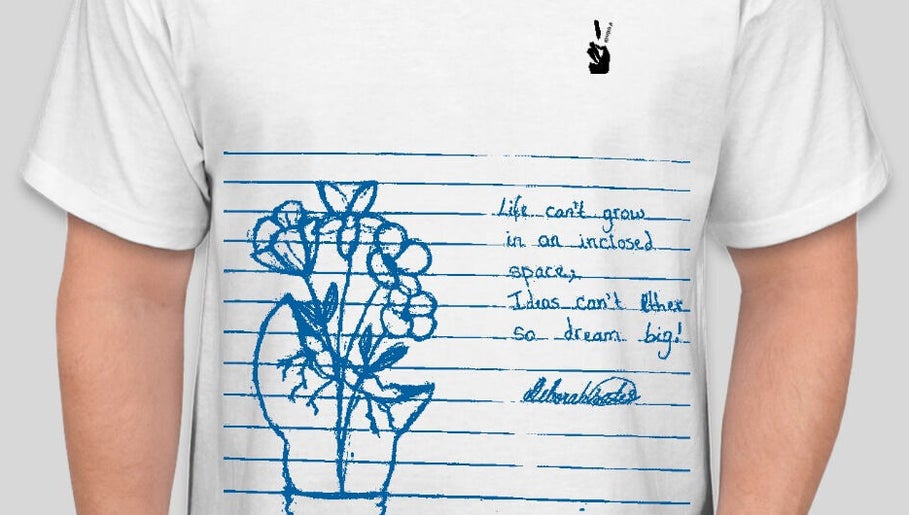 Life can't grow
in an inclosed
space,
Ideas can't
so dream big!
Deborah